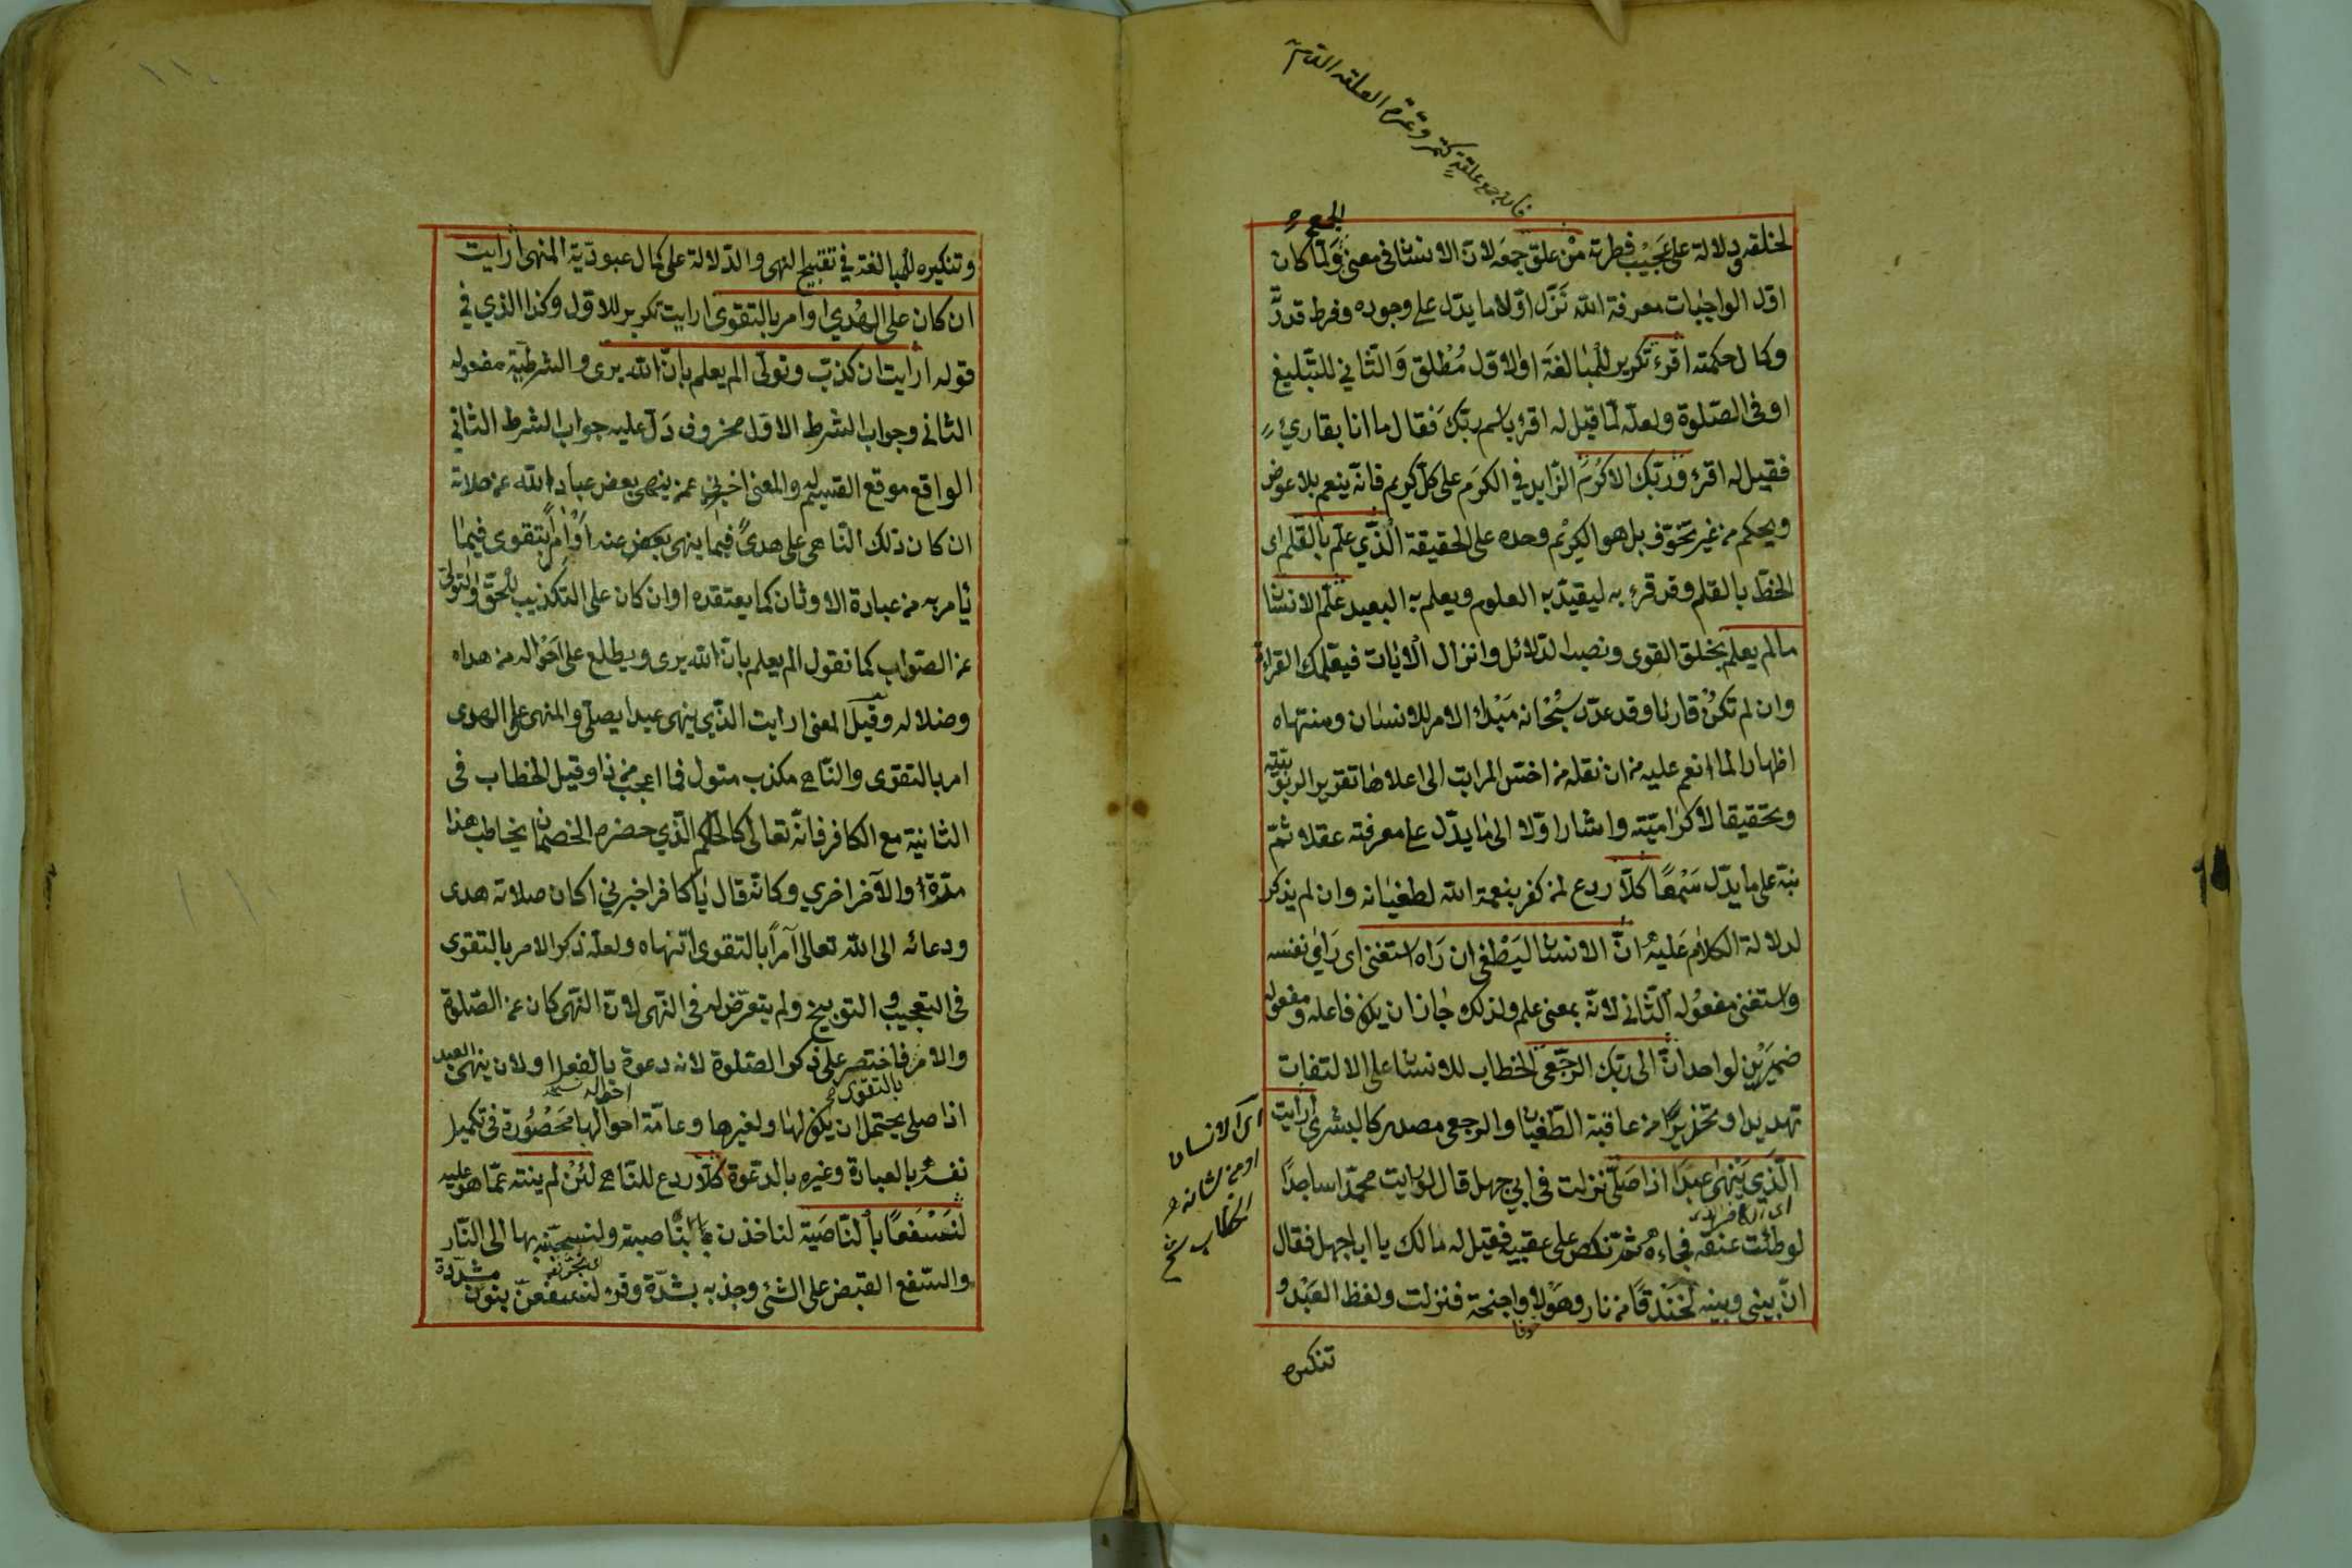 فانه جمع علقة كتمر وتمرة العلقة الدم
الجمع
لخلقه ودلالة على عجيب فطرته من علق جمعه لان الانسان في معنى ولما كان
اول الواجبات معرفة الله نزل اولا ما يدل على وجوده وفرط قدرته
وكمال حكمته اقرء تكرير للمبالغة او الاول مطلق والثاني للتبليغ
او في الصلوة ولعله لما قيل له اقرء باسم ربك فقال ما انا بقارئ
فقيل له اقرء وربك الاكرم الزايد في الكرم على كل كريم فانه ينعم بلا عوض
ويحكم من غير تخوف بل هو الكريم وحده على الحقيقة الذي علم بالقلم اى
الخط بالقلم وقد قرء به ليقيد به العلوم ويعلم به البعيد علم الانسان
ما لم يعلم بخلق القوى ونصب الدلائل وانزال الايات فيعلمك القراءة
وان لم تكن قارئا وقد عدد سبحانه مبدء الامر للانسان ومنتهاه
اظهارا لما انعم عليه من ان نقله من اخس المراتب الى اعلاها تقريرا لربوبيته
وتحقيقا لاكراميته واشار اولا الى ما يدل على معرفته عقلا ثم
نبه على ما يدل سمعا كلا ردع لمن كفر بنعمة الله لطغيانه وان لم يذكر
لدلالة الكلام عليه ان الانسان ليطغى ان راه استغنى اى راى نفسه
واستغنى مفعوله الثاني لانه بمعنى علم ولذلك جاز ان يكون فاعله ومفعوله
ضميرين لواحد ان الى ربك الرجعى الخطاب للانسان على الالتفات
تهديدا وتحذيرا من عاقبة الطغيان والرجعى مصدر كالبشرى ارايت
الذي ينهى عبدا اذا صلى نزلت في ابي جهل قال لو رايت محمدا ساجدا
لوطئت عنقه فجاءه ثم نكص على عقبيه فقيل له مالك يا ابا جهل فقال
ان بيني وبينه لخندقا من نار وهولا واجنحة فنزلت ولفظ العبد و
خوفا
تنكيره
الانسان
الخطاب
وتنكيره للمبالغة في تقبيح النهى والدلالة على كمال عبودية المنهى ارايت
ان كان على الهدي او امر بالتقوى ارايت تكرير للاول وكذا الذي في
قوله ارايت ان كذب وتولى الم يعلم بان الله يرى والشرطية مفعوله
الثانى وجواب الشرط الاول محذوف دل عليه جواب الشرط الثاني
الواقع موقع القسيم له والمعنى اخبرني عمن ينهى بعض عباد الله عن صلاته
ان كان ذلك الناهى على هدى فيما ينهى بعض عنه او امرا بتقوى فيما
يامر به من عبادة الاوثان كما يعتقده او ان كان على التكذيب للحق والتولى
عن الصواب كما نقول الم يعلم بان الله يرى ويطلع على احواله من هداه
وضلاله وقيل المعنى ارايت الذي ينهى عبدا يصلى والمنهى على الهدى
امر بالتقوى والناهى مكذب متول فما اعجب من ذا وقيل الخطاب فى
الثانية مع الكافر فانه تعالى كالحاكم الذي حضره الخصمان يخاطب هذا
مرة والآخر اخري وكانه قال يا كافر اخبرني اكان صلاته هدى
ودعائه الى الله تعالى آمرا بالتقوى اتنهاه ولعله ذكر الامر بالتقوى
فى التعجيب والتوبيخ ولم يتعرض له فى النهى لان النهى كان عن الصلوة
والامر فاختصر على ذكر الصلوة لانه دعوة بالفعل او لان ينهى العبد
بالتقوى
اذا صلى يحتمل ان يكون لها ولغيرها وعامة احوالها محصورة فى تكميل
نفسه بالعبادة وغيره بالدعوة كلا ردع للناهى لئن لم ينته عما هو عليه
لنسفعا بالناصية لناخذن بالناصية ولنسحبنه بها الى النار
والسفع القبض على الشئ وجذبه بشدة وقرء لنسفعن بنون مشددة